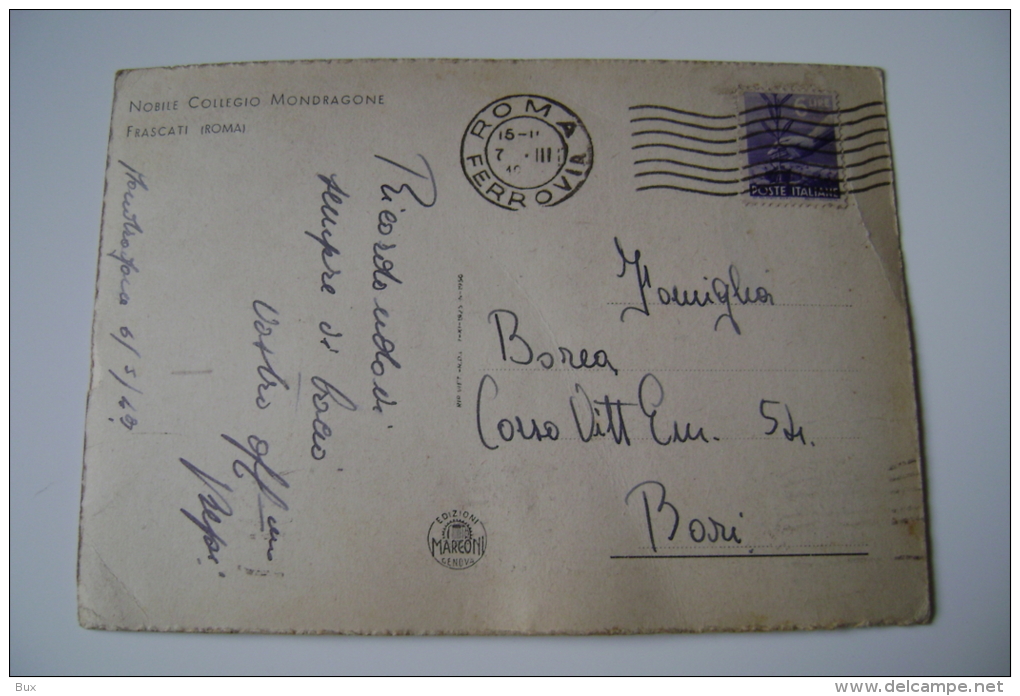 NOBILE COLLEGIO MONDRAGONE
FRASCATI (ROMA)
6/3/49
Ricordandovi
sempre vi bacio
Vostro aff/mo
Beppe
ROMA
FERROVIA
15-
7 . III
5 LIRE
POSTE ITALIANE
Famiglia
Borea
Corso Vitt Em. 54.
Bari
EDIZIONI
MARCONI
GENOVA
Bux
delcampe.net